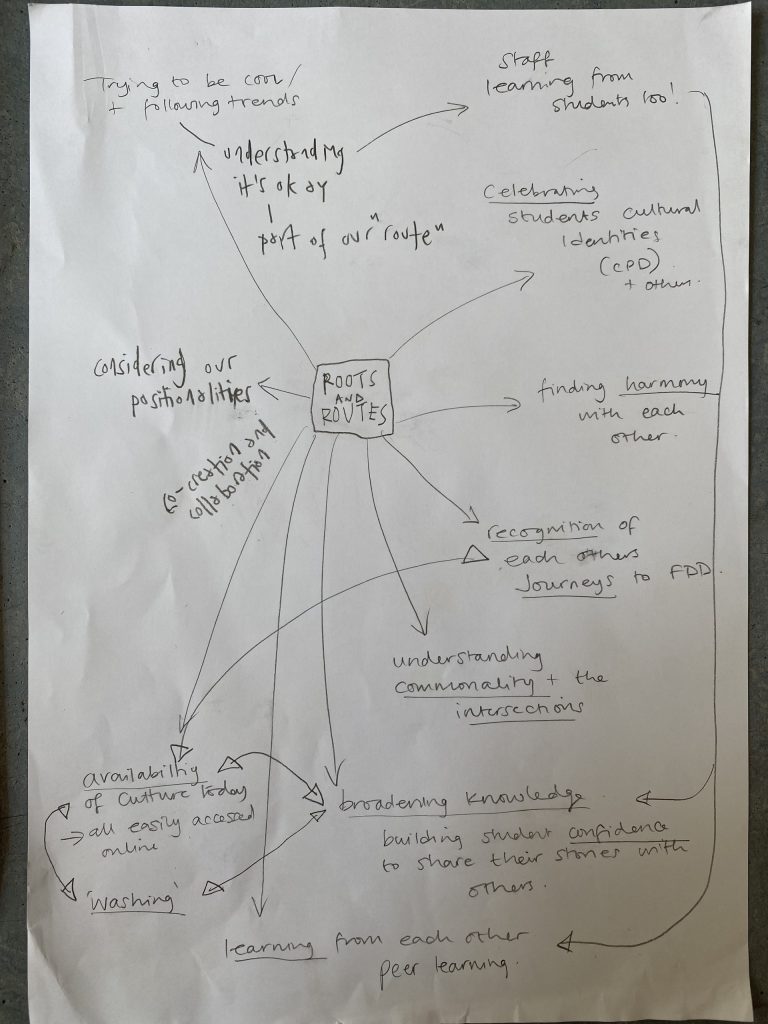 Trying to be cool /
+ following trends
Staff
learning from
students too!
understanding
it's okay
part of our "route"
Celebrating
students cultural
Identities
(CPD)
+ others.
considering our
positionalities
ROOTS
AND
ROUTES
finding harmony
with each
other.
co-creation and
collaboration
recognition of
each others
Journeys to FDD.
understanding
commonality + the
intersections
availability
of culture today
→ all easily accessed
online
'washing'
broadening knowledge
building student confidence
to share their stories with
others.
learning from each other
peer learning.